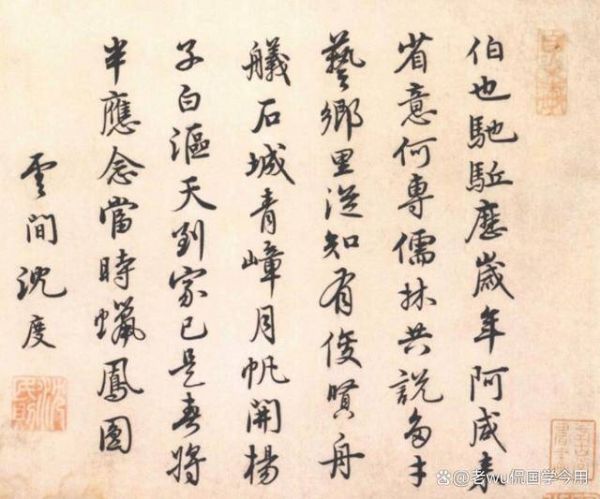 伯也馳驅應歲年阿咸來
省意何專儒林共說多才
藝鄉里從知有俊賢舟
艤石城青嶂月帆開楊
子白漚天到家已是春將
半應念當時蠟鳳圓
雲間沈度
老wu侃国学今用